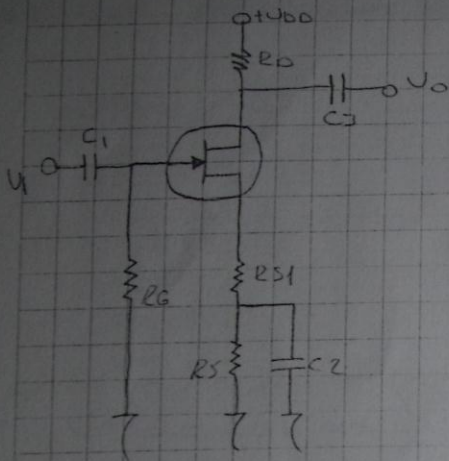 +VDD
RD
Vo
C3
C1
Vi
RS1
RG
RS
C2